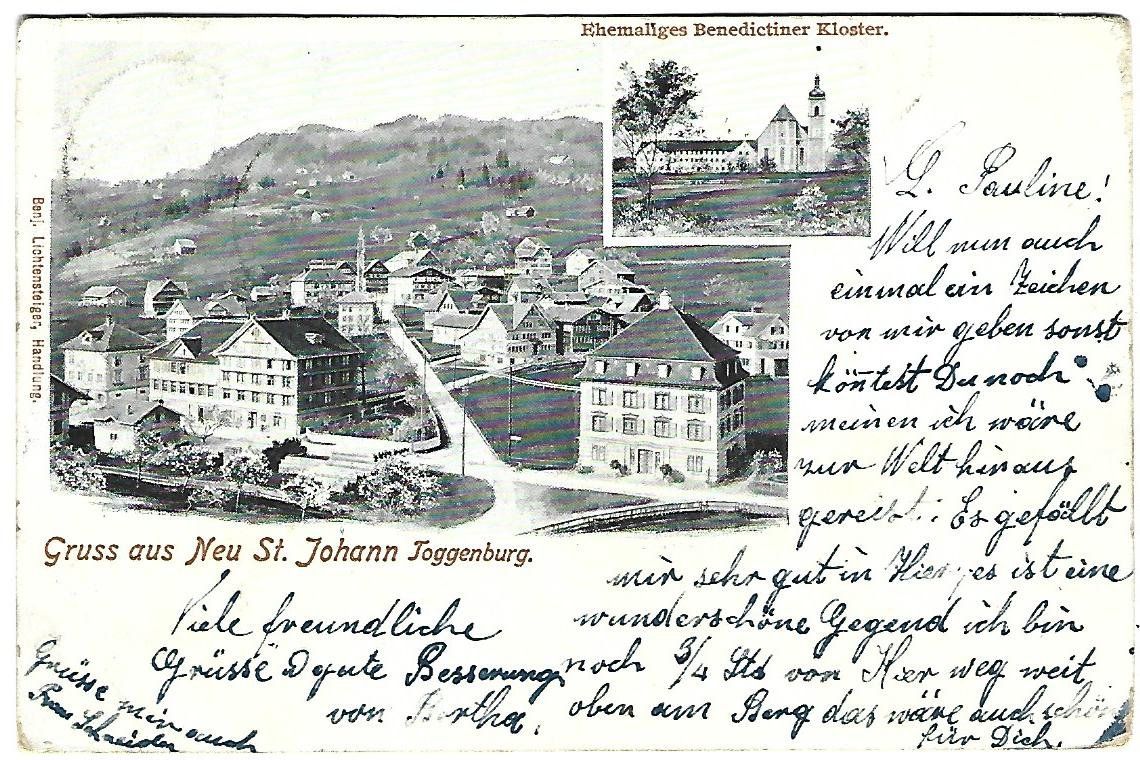 Ehemaliges Benedictiner Kloster.
Benj. Lichtensteiger, Handlung.
Gruss aus Neu St. Johann Toggenburg.
L. Pauline!
Will nun auch
einmal ein Zeichen
von mir geben sonst
köntest Du noch
meinen ich wäre
zur Welt hinaus
gereist. Es gefällt
mir sehr gut in Hier, es ist eine
wunderschöne Gegend ich bin
noch 3/4 Std von Hier weg weit
oben am Berg das wäre auch schön
für Dich.
Viele freundliche
Grüsse & gute Besserung
von Bertha.
Grüsse mir auch
Frau Schneider